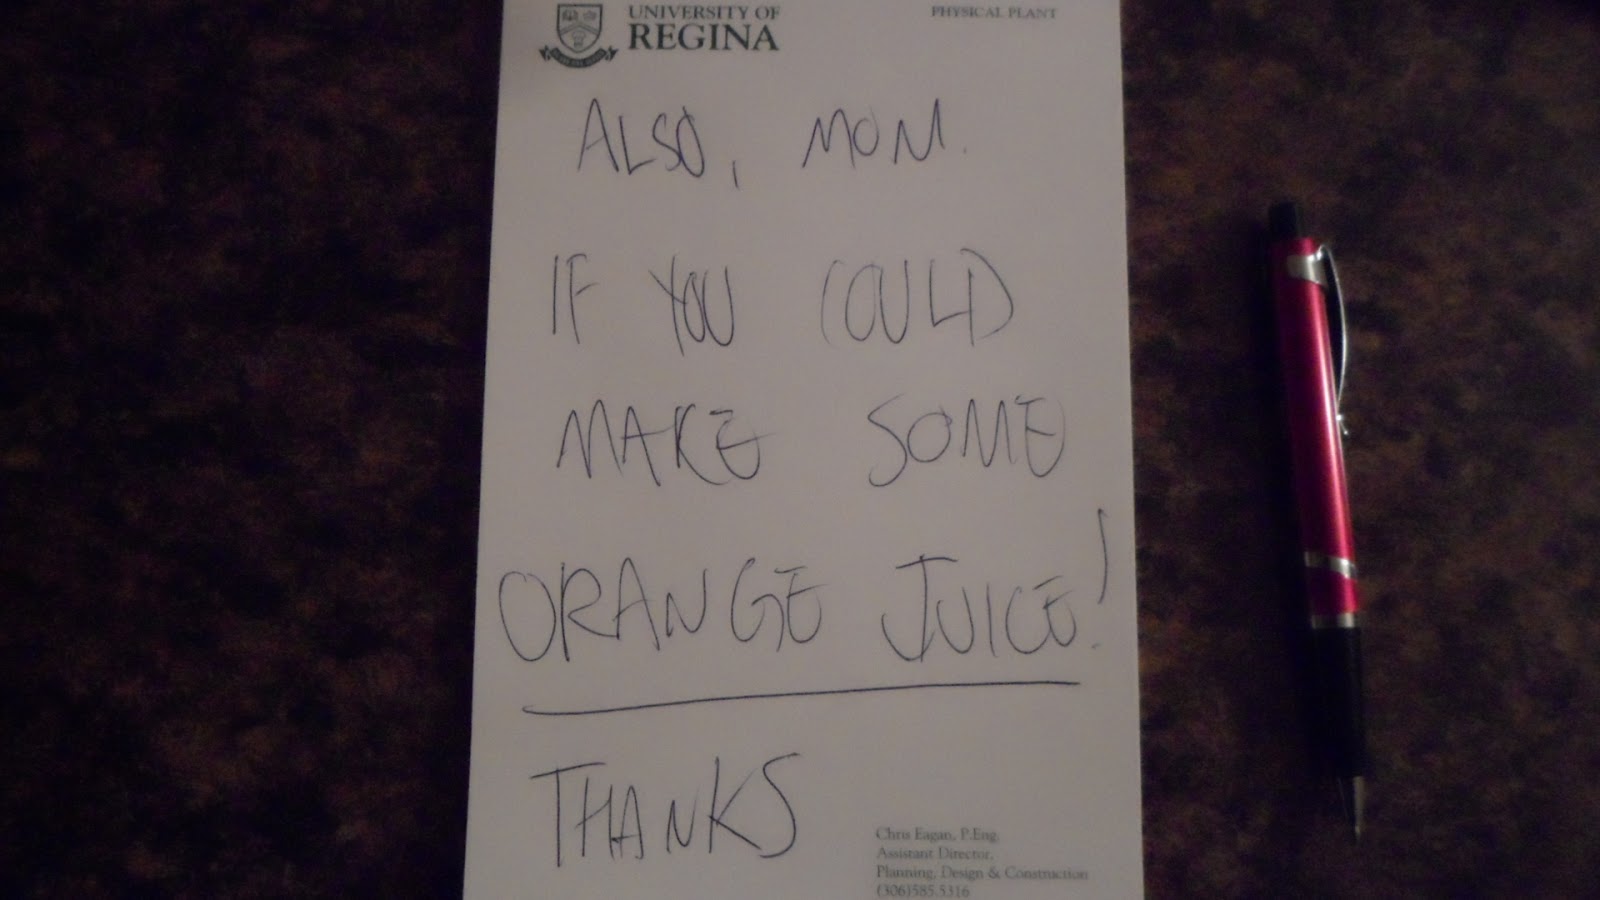 UNIVERSITY OF
REGINA
PHYSICAL PLANT
ALSO, MOM.
IF YOU COULD
MAKE SOME
ORANGE JUICE!
THANKS
Chris Eagan, P.Eng.
Assistant Director,
Planning, Design & Construction
(306)585.5316